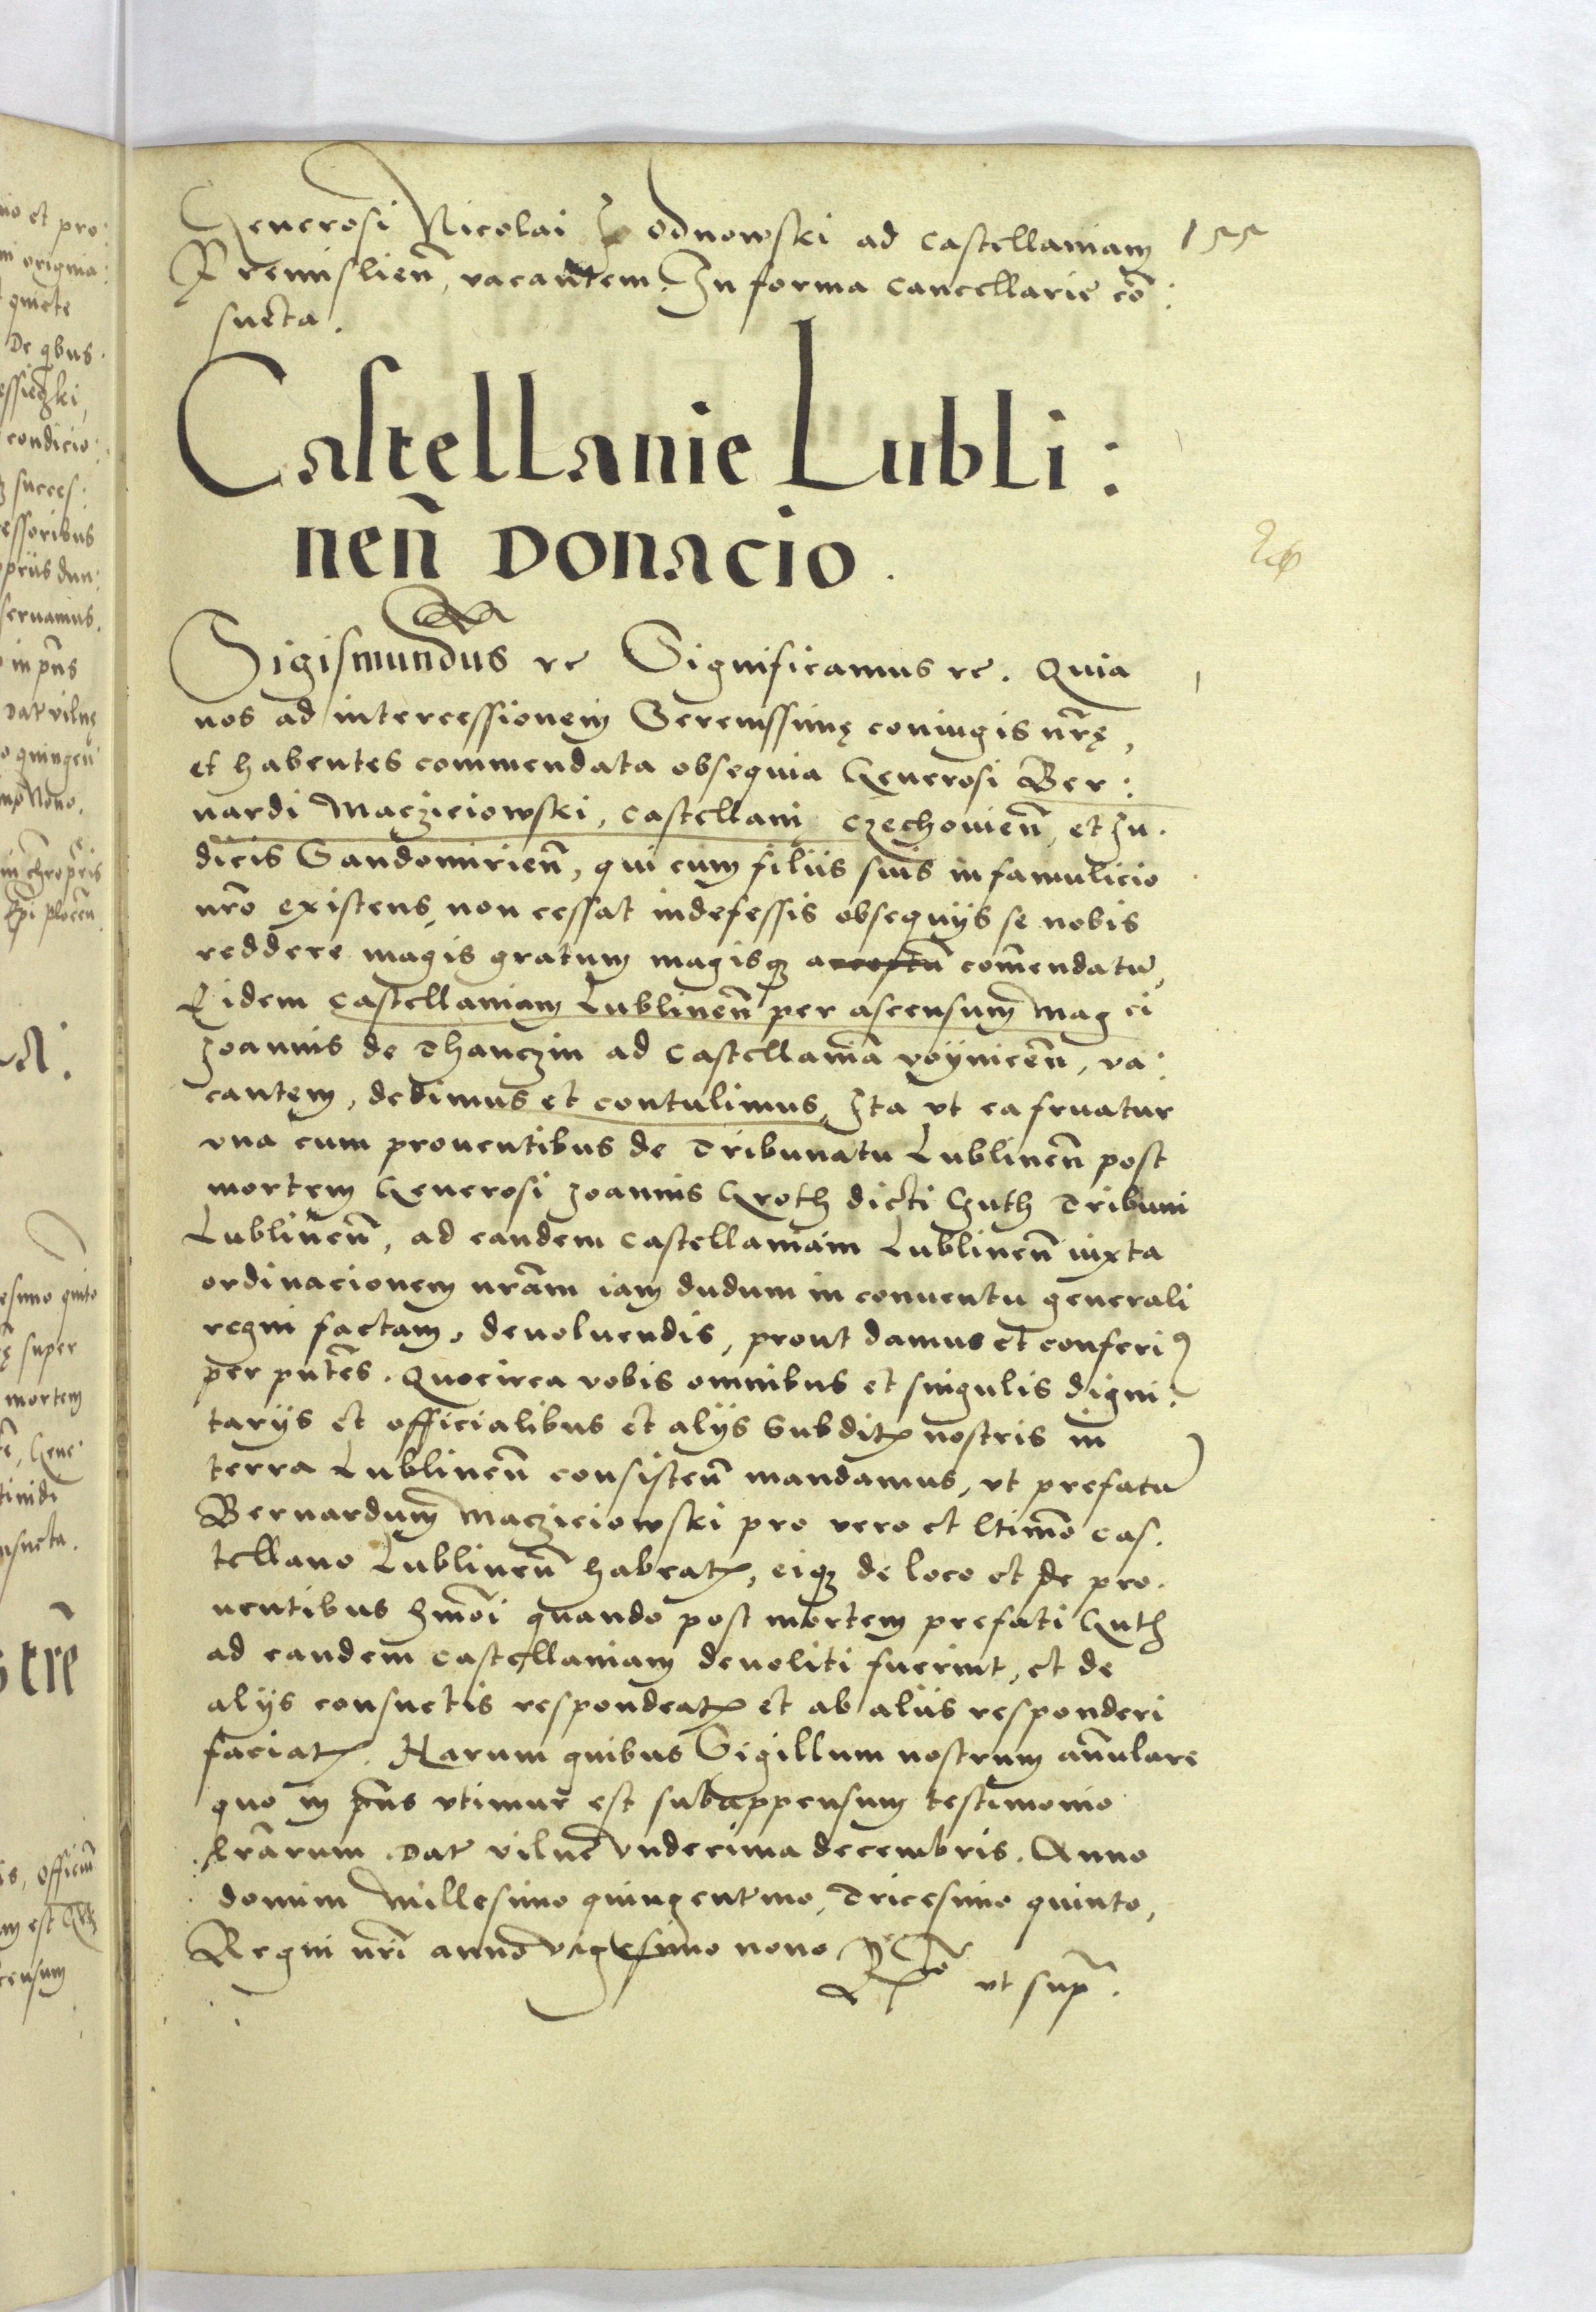 Generosi Nicolai Wodnowski ad castellaniam 155
Premislien̄, vacantem. In forma cancellarie cō:
sueta.
Castellanie Lubli:
nen̄ Donacio.
Sigismundus rc Significamus rc. Quia
nos ad intercessionem Serenissimę coniugis nr̄ę,
et habentes commendata obsequia Generosi Ber:
nardi Macziciowski, castellani Czechouien̄, et Iu.
dicis Sandomirien̄, qui cum filiis suis in famulicio
nrō existens, non cessat indefessis obsequijs se nobis
reddere magis gratum magisqꝫ acceptū com̄endatū,
Eidem castellaniam Lublinen̄ per ascensum Mag ci
Joannis de Thanczin ad castellaniā voynicen̄, va:
cantem, dedimus et contulimus, Ita vt ea fruatur
vna cum prouentibus de Tribunatu Lublinen̄ post
mortem Generosi Joannis Groth dicti Guth Tribuni
Lublinen̄, ad eandem castellaniam Lublinen̄ iuxta
ordinacionem nrām iam dudum in conuentu generali
regni factam, deuoluendis, prout damus et conferiꝰ
per pn̄tes. Quocirca vobis omnibus et singulis digni:
tarijs et officialibus et alijs subditꝭ nostris in
terra Lublinen̄ consisten̄ mandamus, vt prefatū
Bernardum Macziciowski pro vero et ltimō cas.
tellano Lublinen̄ habeatꝭ, eiqꝫ de loco et de pro.
uentibus hmōi quando post mortem prefati Guth
ad eandem castellaniam deuoliti fuerint, et de
alijs consuetis respondeatꝭ et ab aliis responderi
faciatꝭ. Harum quibus Sigillum nostrum an̄ulare
quo in pn̄s vtimur est subappensum testimonio
lrārum. Dat vilnē vndecima decembris. Anno
domini Millesimo quingentmo, Tricesimo quinto,
Regni nrī anno vigesimo nono
Rō vt sup̄.